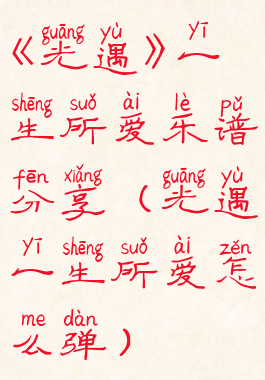 guāng yù yī
《光遇》一
shēng suǒ ài lè pǔ
生所爱乐谱
fēn xiǎng guāng yù
分享（光遇
yī shēng suǒ ài zěn
一生所爱怎
me dàn
么弹）